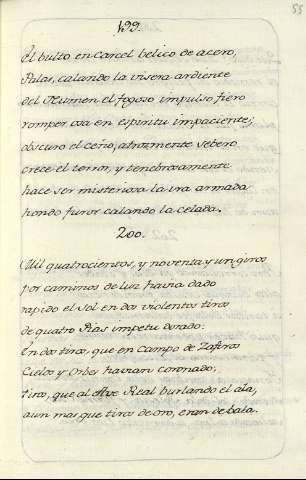 55
199.
El bulto en Carcel belico de acero,
Palas, calando la visera ardiente
del Numen el fogoso impulso fiero
romper osa en espiritu impaciente;
obscuro el ceño, atrozmente sebero
crece el terror, y tenebrosamente
hace ser misteriosa la ira armada
hondo furor calando la celada.
200.
Mil quatrocientos, y noventa y un giros
por caminos de luz havia dado
rapido el Sol en dos violentos tiros
de quatro Pias impetu dorado:
En dos tiros, que en Campo de Zafiros
Cielos y Orbes havian coronado,
tiros, que al Ave Real burlando el ala,
aun mas que tiros de oro, eran de bala.